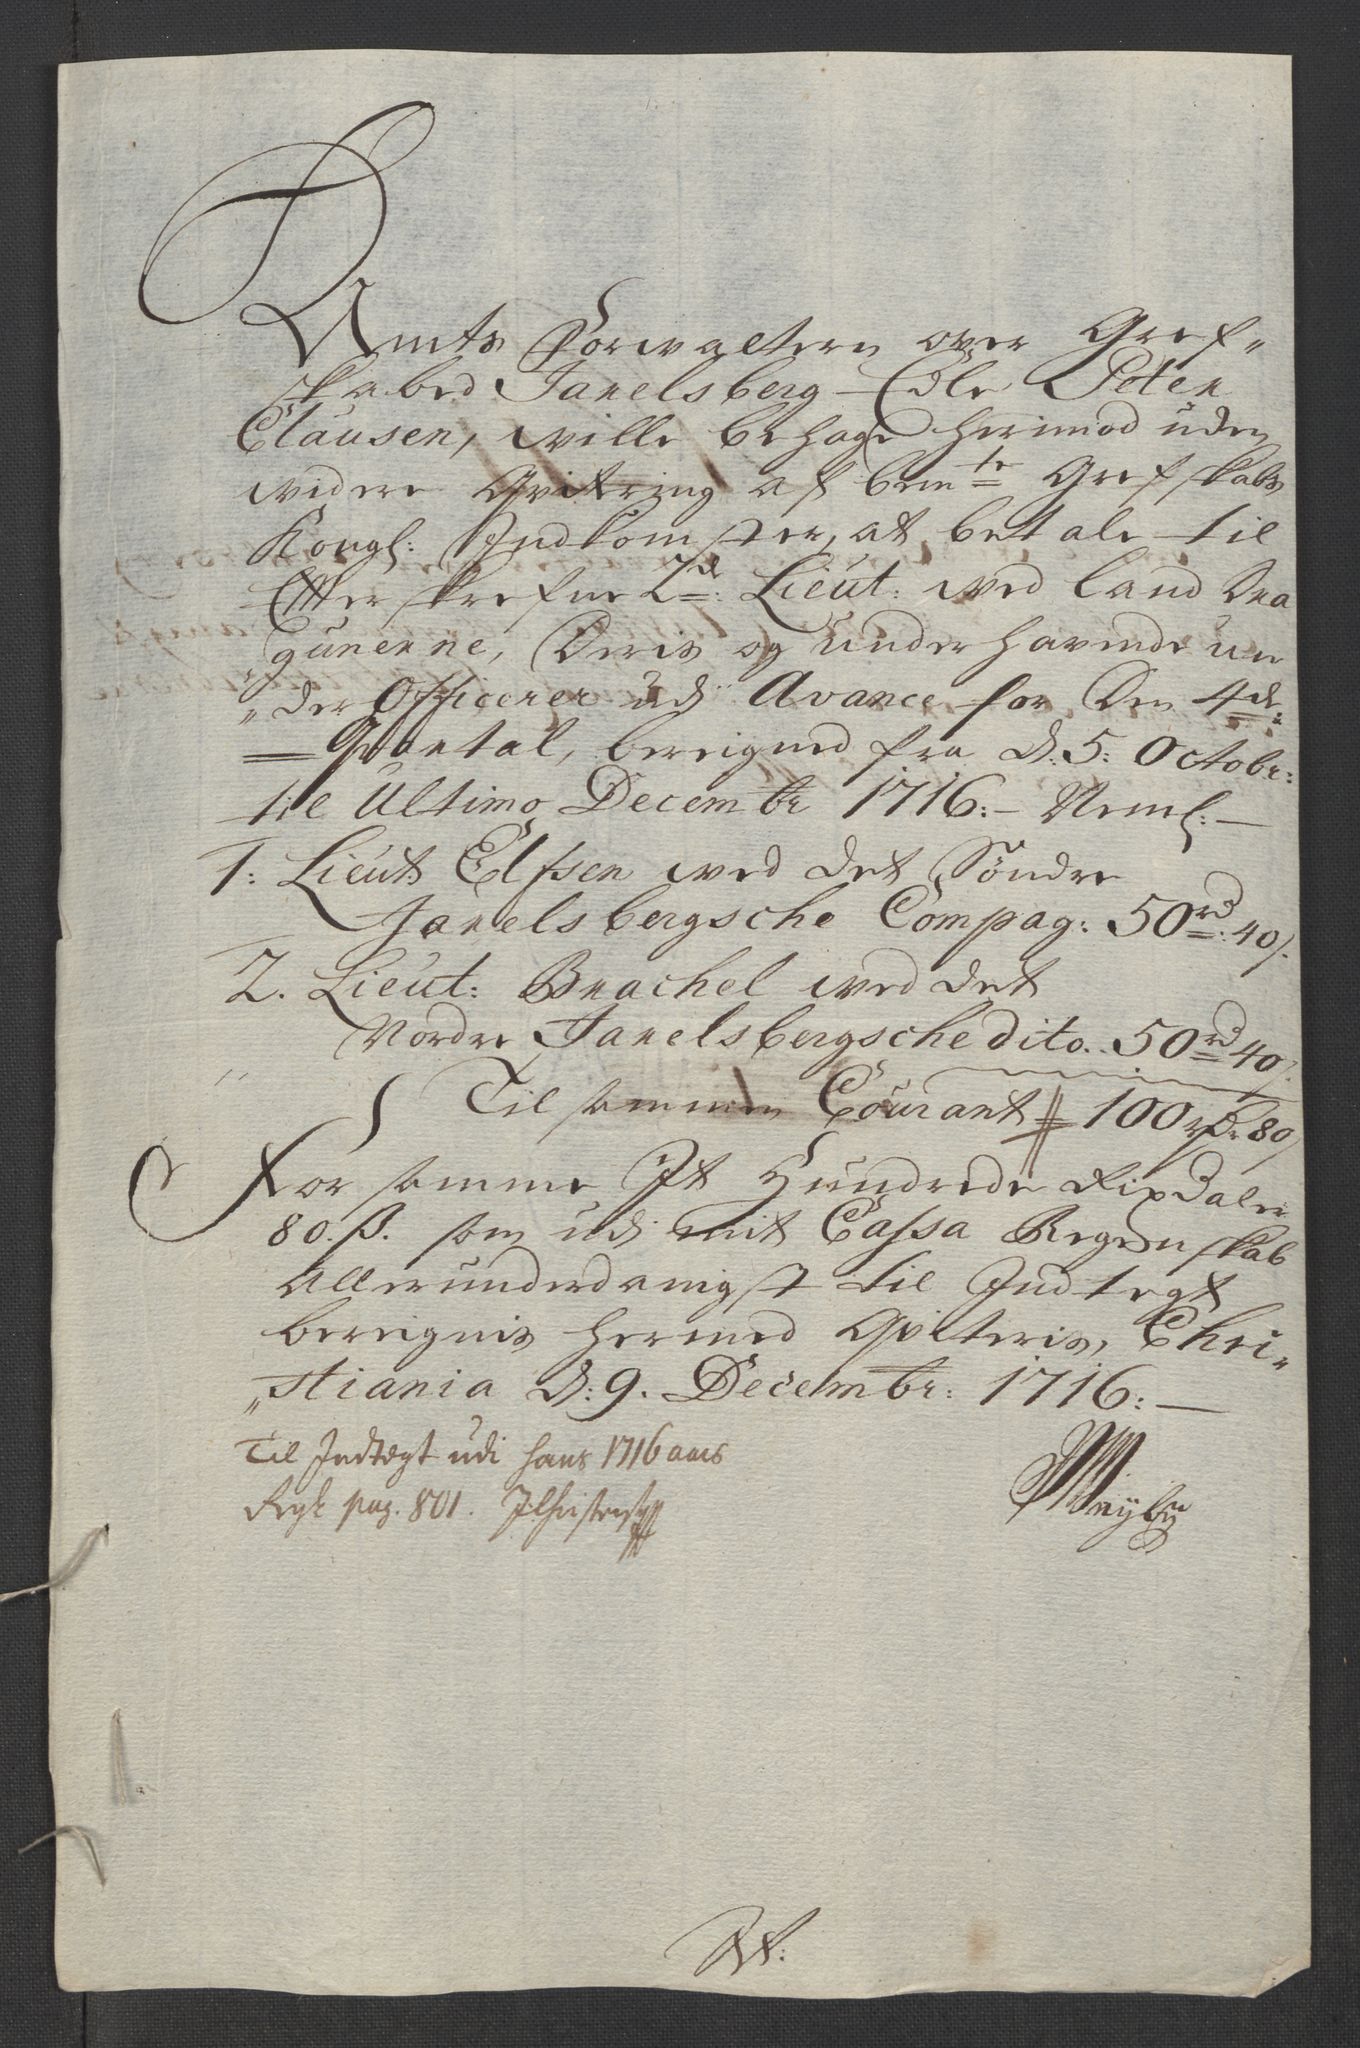 Amts Forwaltern over Gref„
skabed Jarelsberg Edle Peter
Clausen, wille behage herimod uden
widere Qvitering af bem:te Grefskabs
Kongl: Indkomster, at betale til
Efterskrefne 2de: Lieut: wed Land Dra
„gunerne, Deris og underhavende un
„der Officerer udj Avance for Den 4de:
Qvartal, bereigned fra d: 5: Octobr:
til Ultimo Decembr 1716:— Neml:—
1: Lieut: Elfsen wed det Søndre
Jarelsbergsche Compag: 50rd: 40ß.
2. Lieut: Brachel wed det
Nordre Jarelsbergsche dito. 50rd 40ß.
Til sammen Courant 100 rdr 80ß
For samme It Hundrede Rixdaler
80. ß. som udj mit Cassa Regenskab
Allerunderdanigst til Indtegt
bereignis hermed Qviteris, Chri„
„stiania d: 9. Decembr: 1716:—
Til Indtegt udi hans 1716 aars
Regk pag. 801.